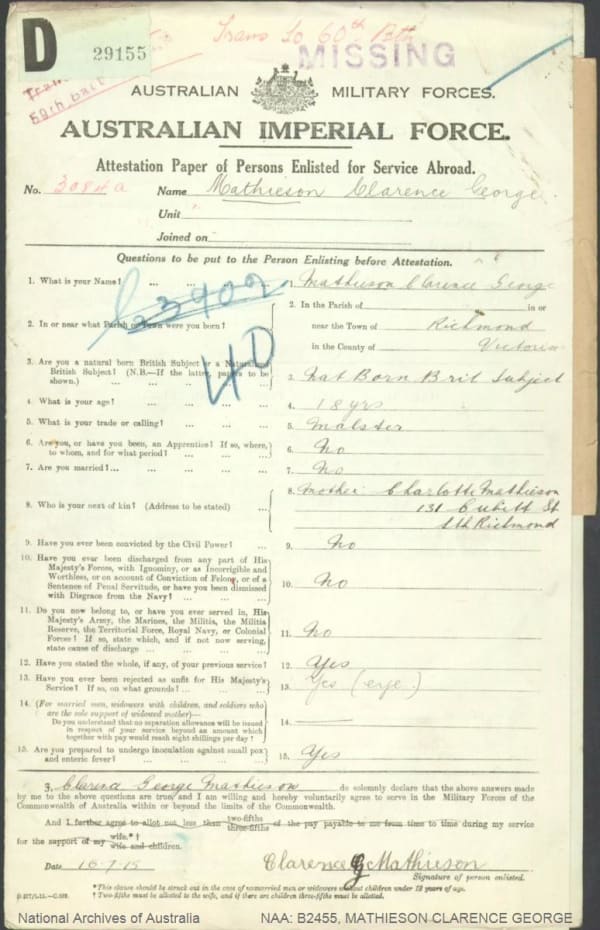 D
29155
Trans to 60th Bttn
MISSING
59th batt
AUSTRALIAN MILITARY FORCES.
AUSTRALIAN IMPERIAL FORCE.
Attestation Paper of Persons Enlisted for Service Abroad.
No. 3084a Name Mathieson Clarence George
Unit
Joined on
Questions to be put to the Person Enlisting before Attestation.
1. What is your Name? ... ... ... ... 1. Mathieson Clarence George
2. In or near what Parish or Town were you born? ... 2. In the Parish of in or
near the Town of Richmond
in the County of Victoria
40
3. Are you a natural born British Subject or a Naturalized
British Subject? (N.B.—If the latter, papers to be
shown.) ... ... ... ... 3. Nat Born Brit Subject
4. What is your age? ... ... ... ... 4. 18 yrs
5. What is your trade or calling? ... ... ... 5. Malster
6. Are you, or have you been, an Apprentice? If so, where,
to whom, and for what period? ... ... ... 6. No
7. Are you married? ... ... ... ... 7. No
8. Who is your next of kin? (Address to be stated) ... 8. Mother Charlotte Mathieson
131 Cubitt St
Sth Richmond
9. Have you ever been convicted by the Civil Power? ... 9. No
10. Have you ever been discharged from any part of His
Majesty's Forces, with Ignominy, or as Incorrigible and
Worthless, or on account of Conviction of Felony, or of a
Sentence of Penal Servitude, or have you been dismissed
with Disgrace from the Navy? ... ... ... 10. No
11. Do you now belong to, or have you ever served in, His
Majesty's Army, the Marines, the Militia, the Militia
Reserve, the Territorial Force, Royal Navy, or Colonial
Forces? If so, state which, and if not now serving,
state cause of discharge ... ... ... ... 11. No
12. Have you stated the whole, if any, of your previous service? 12. Yes
13. Have you ever been rejected as unfit for His Majesty's
Service? If so, on what grounds? ... ... ... 13. Yes (eye.)
14. (For married men, widowers with children, and soldiers who
are the sole support of widowed mother)—
Do you understand that no separation allowance will be issued
in respect of your service beyond an amount which
together with pay would reach eight shillings per day? 14. —
15. Are you prepared to undergo inoculation against small pox
and enteric fever? ... ... ... ... 15. Yes
I, Clarence George Mathieson do solemnly declare that the above answers made
by me to the above questions are true, and I am willing and hereby voluntarily agree to serve in the Military Forces of the
Commonwealth of Australia within or beyond the limits of the Commonwealth.
And I further agree to allot not less than two-fifths three-fifths of the pay payable to me from time to time during my service
for the support of my wife.*† wife and children.
Date 16-7-15 Clarence G Mathieson
Signature of person enlisted.
* This clause should be struck out in the case of unmarried men or widowers without children under 18 years of age.
† Two-fifths must be allotted to the wife, and if there are children three-fifths must be allotted.
National Archives of Australia NAA: B2455, MATHIESON CLARENCE GEORGE